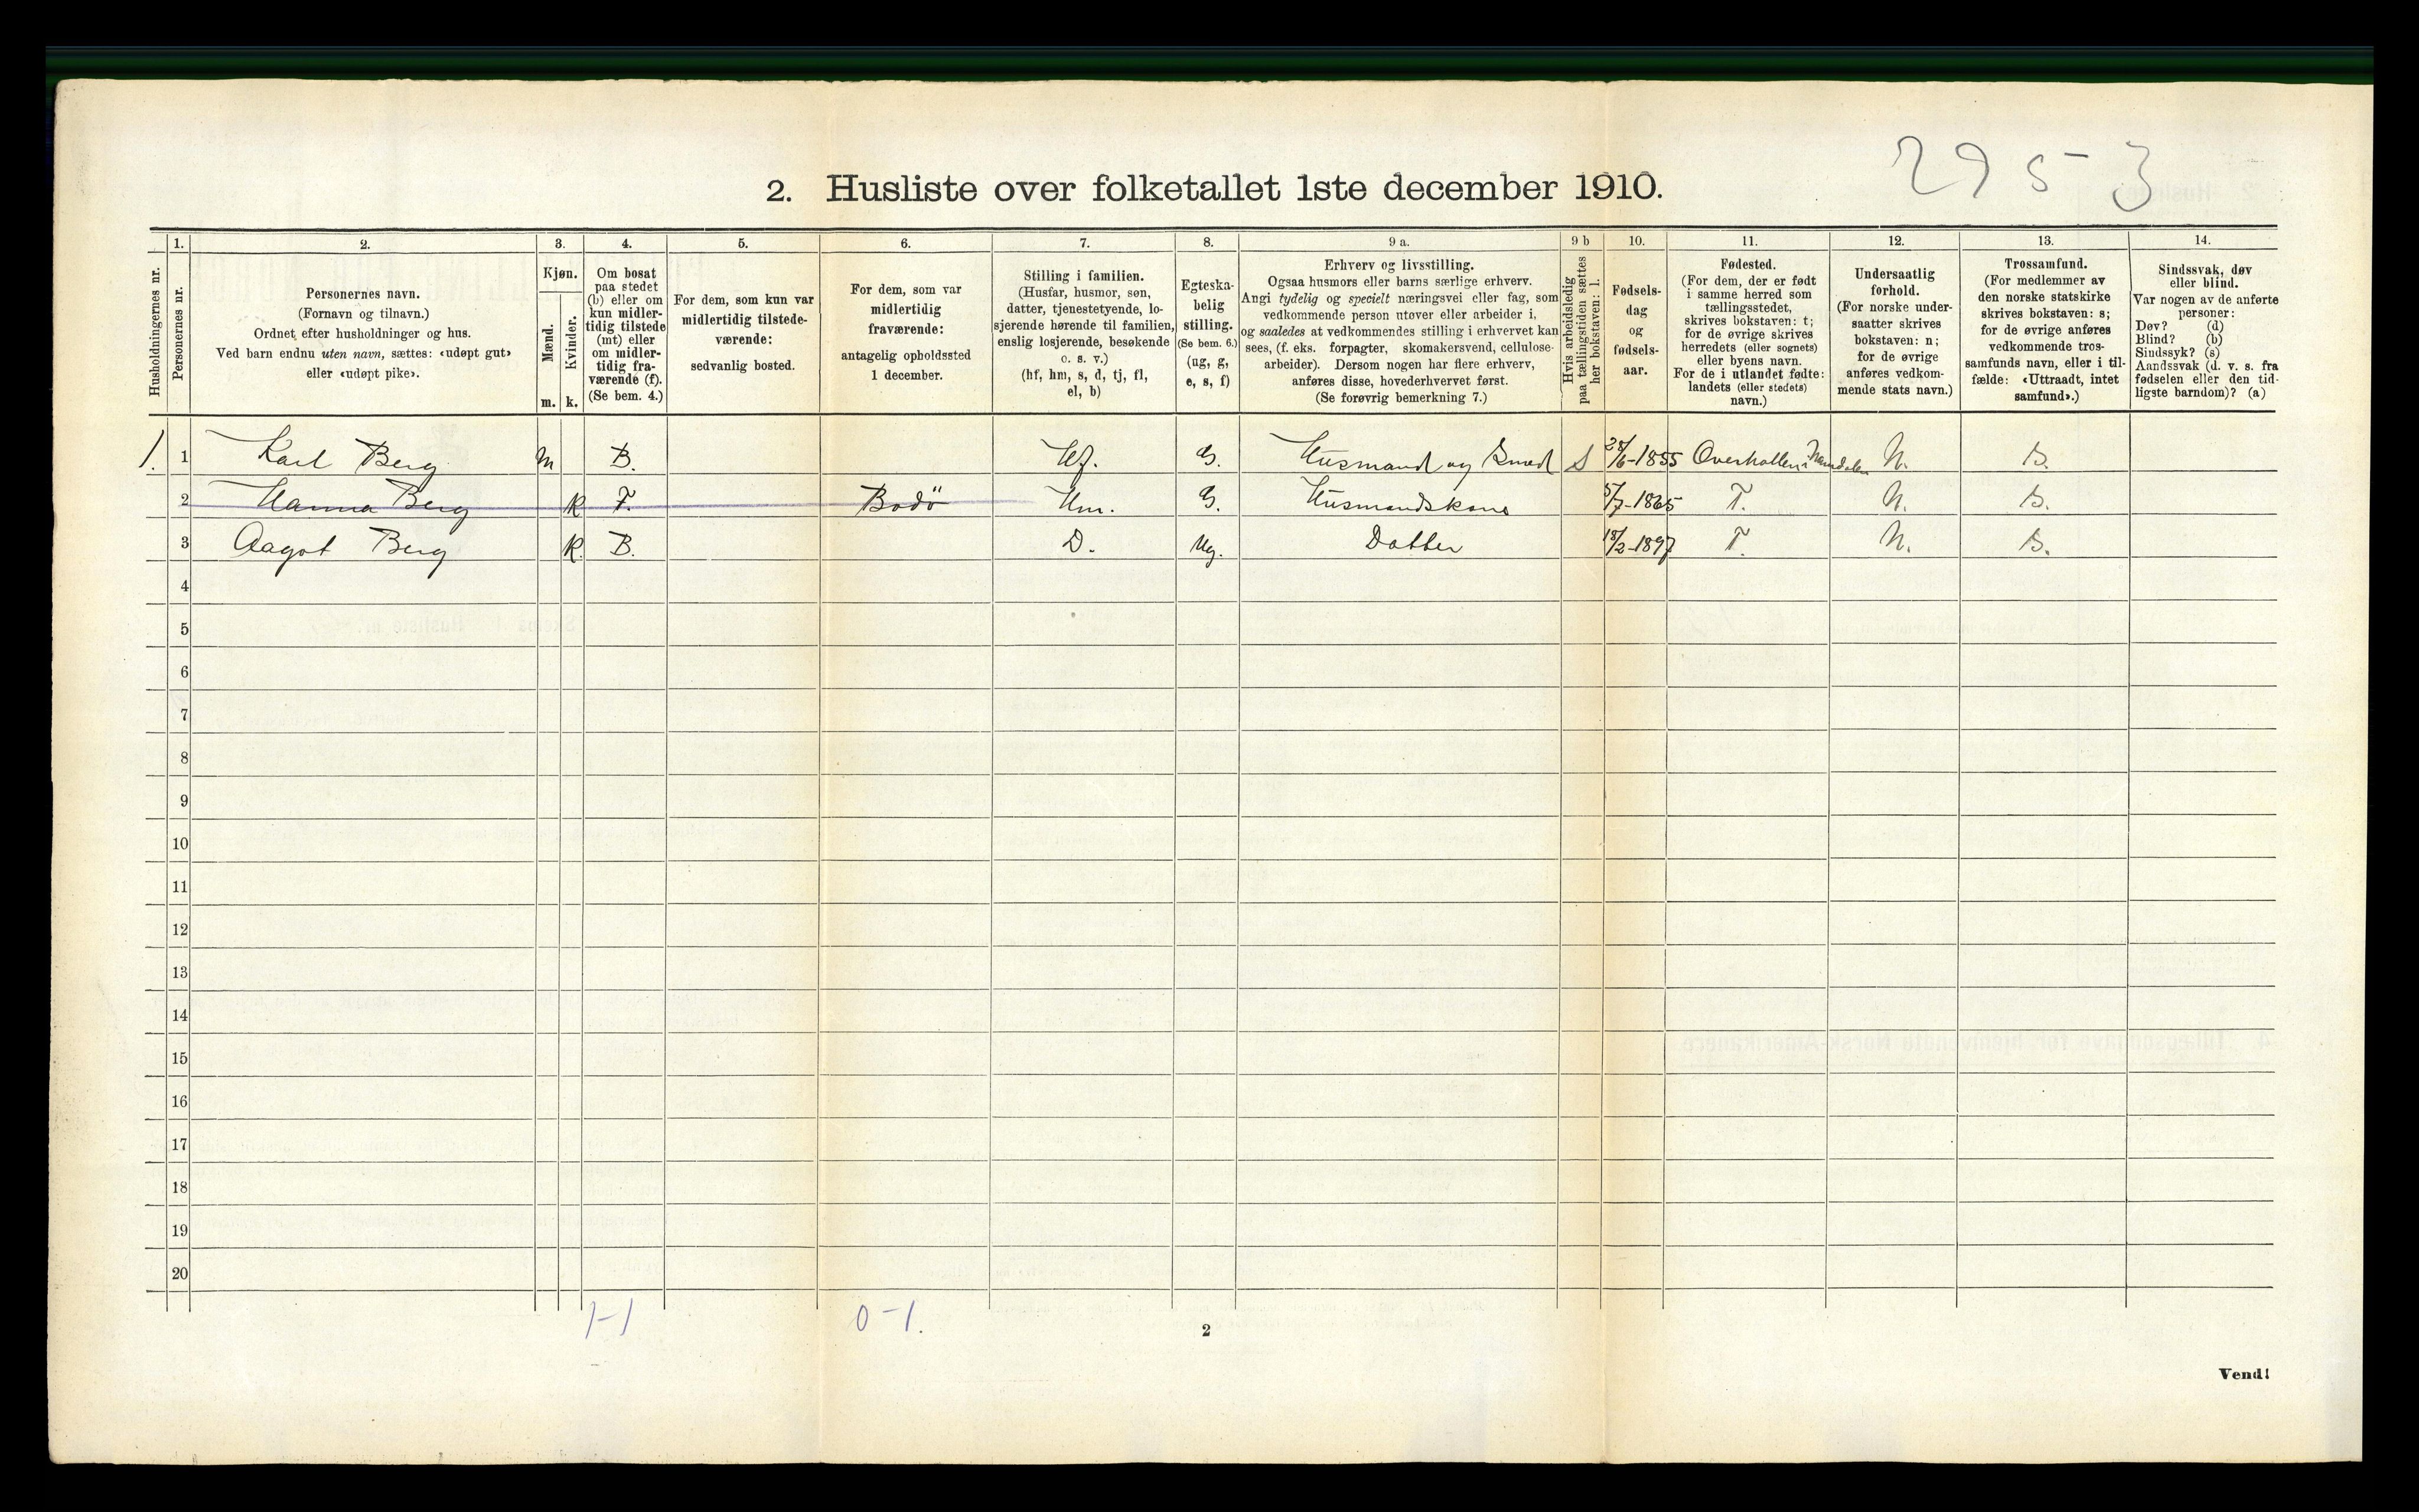 2953
2. Husliste over folketallet 1ste december 1910.
1. 2. 3. 4. 5. 6. 7. 8. 9 a. 9 b 10. 11. 12. 13. 14.
Husholdningernes nr.
Personernes nr.
Personernes navn.
(Fornavn og tilnavn.)
Ordnet efter husholdninger og hus.
Ved barn endnu uten navn, sættes: «udøpt gut»
eller «udøpt pike».
Kjøn.
Mænd.
Kvinder.
m. k.
Om bosat
paa stedet
(b) eller om
kun midler-
tidig tilstede
(mt) eller
om midler-
tidig fra-
værende (f).
(Se bem. 4.)
For dem, som kun var
midlertidig tilstede-
værende:
sedvanlig bosted.
For dem, som var
midlertidig
fraværende:
antagelig opholdssted
1 december.
Stilling i familien.
(Husfar, husmor, søn,
datter, tjenestetyende, lo-
sjerende hørende til familien,
enslig losjerende, besøkende
o. s. v.)
(hf, hm, s, d, tj, fl,
el, b)
Egteska-
belig
stilling.
(Se bem. 6.)
(ug, g,
e, s, f)
Erhverv og livsstilling.
Ogsaa husmors eller barns særlige erhverv.
Angi tydelig og specielt næringsvei eller fag, som
vedkommende person utøver eller arbeider i,
og saaledes at vedkommendes stilling i erhvervet kan
sees, (f. eks. forpagter, skomakersvend, cellulose-
arbeider). Dersom nogen har flere erhverv,
anføres disse, hovederhvervet først.
(Se forøvrig bemerkning 7.)
Hvis arbeidsledig
paa tællingstiden sættes
her bokstaven: l.
Fødsels-
dag
og
fødsels-
aar.
Fødested.
(For dem, der er født
i samme herred som
tællingsstedet,
skrives bokstaven: t;
for de øvrige skrives
herredets (eller sognets)
eller byens navn.
For de i utlandet fødte:
landets (eller stedets)
navn.)
Undersaatlig
forhold.
(For norske under-
saatter skrives
bokstaven: n;
for de øvrige
anføres vedkom-
mende stats navn.)
Trossamfund.
(For medlemmer av
den norske statskirke
skrives bokstaven: s;
for de øvrige anføres
vedkommende tros-
samfunds navn, eller i til-
fælde: «Uttraadt, intet
samfund».)
Sindssvak, døv
eller blind.
Var nogen av de anførte
personer:
Døv? (d)
Blind? (b)
Sindssyk? (s)
Aandssvak (d. v. s. fra
fødselen eller den tid-
ligste barndom)? (a)
1. 1 Karl Berg m B. Hf. G. Husmand og Smed S 28/6-1855 Overhallen i Namdalen N. S.
2 Hanna Berg k F. Bodö Hm. G. Husmandskone 5/7-1865 T. N. S.
3 Aagot Berg k. B. D. Ug. Datter 18/2-1897 T. N. S.
4
5
6
7
8
9
10
11
12
13
14
15
16
17
18
19
20
1-1 0-1.
2
Vend!